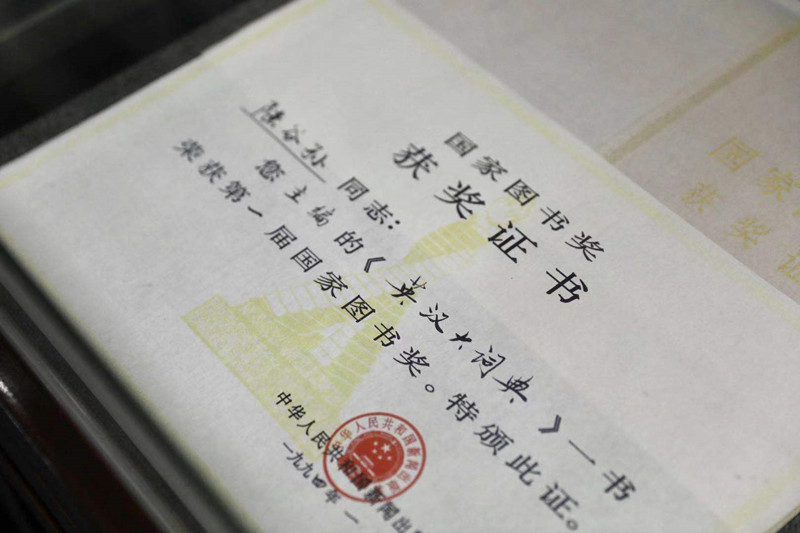 国家图书奖
获奖证书
陆谷孙 同志:
您主编的《英汉大词典》一书
荣获第一届国家图书奖。特颁此证。
中华人民共和国新闻出
一九九四年一
中华人民共和国新闻出
国家
获奖证